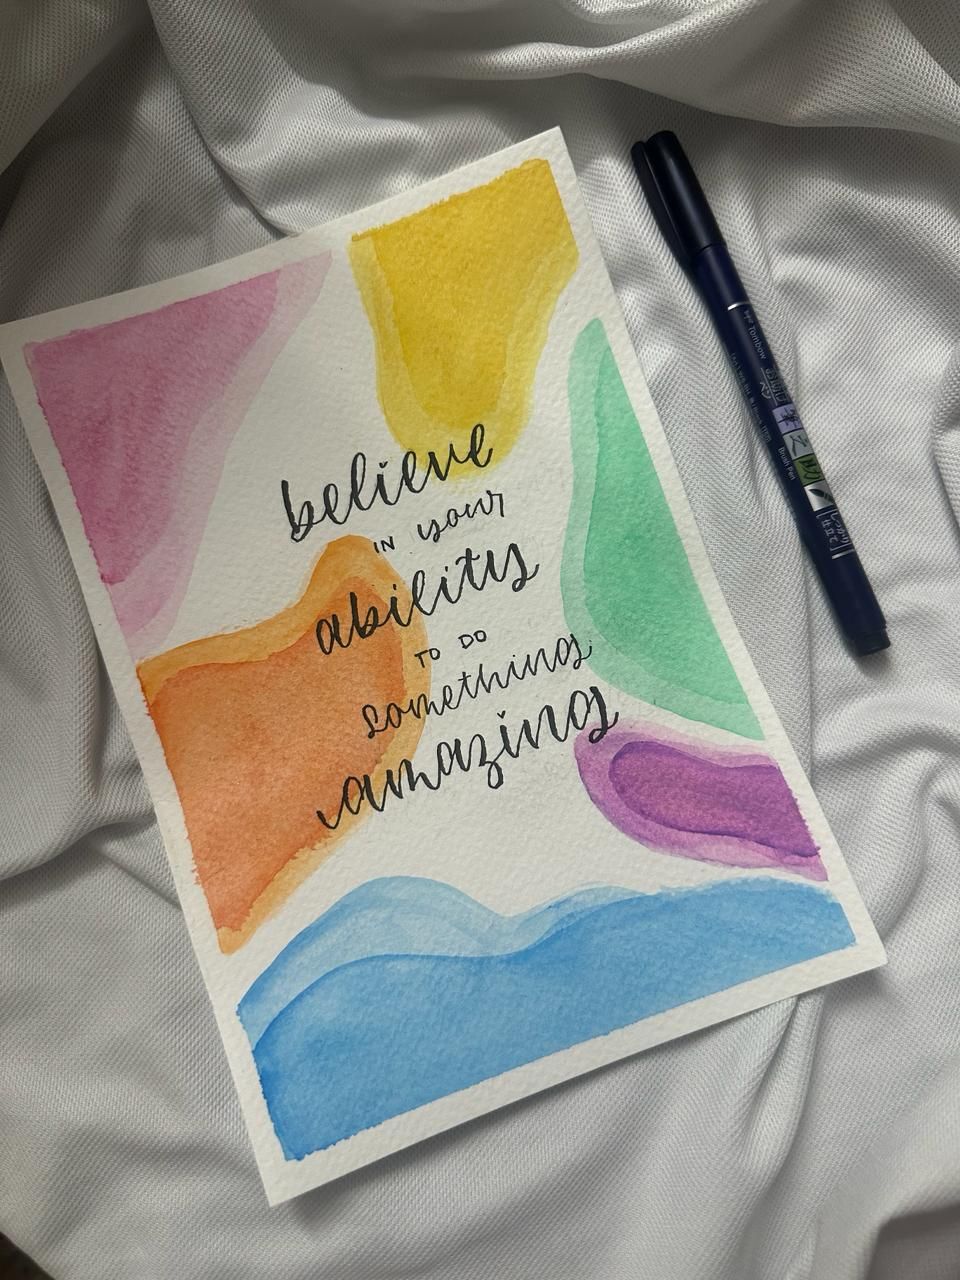 believe
IN your
ability
TO DO
something
amazing
Tombow
Brush Pen